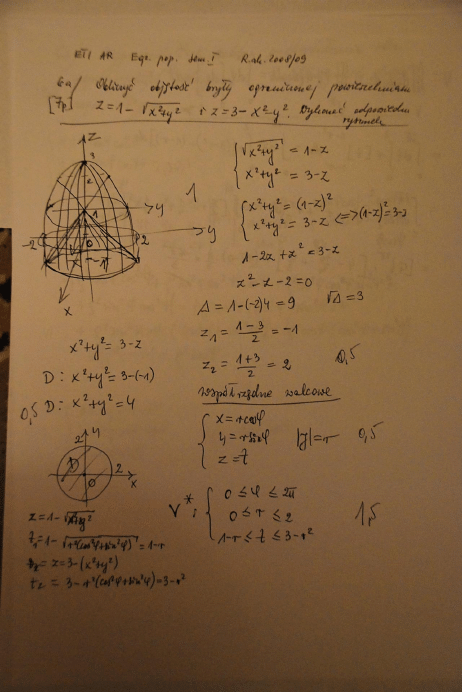 ETI AR Egz. pop. sem. I R.ak. 2008/09
6a/ Obliczyć objętość bryły ograniczonej powierzchniami
[7p.] z=1-√(x²+y²) i z=3-x²-y². Wykonać odpowiedni
rysunek
z
3
2
1
y
y
-2
0
2
-1
x
1
√(x²+y²) = 1-z
x²+y² = 3-z
x²+y² = (1-z)²
x²+y² = 3-z <=> (1-z)²=3-z
1-2z+z²=3-z
z²-z-2=0
Δ = 1-(-2)4 = 9 √Δ = 3
z₁ = (1-3)/2 = -1
z₂ = (1+3)/2 = 2 0,5
x²+y² = 3-z
D: x²+y² = 3-(-1)
0,5 D: x²+y² = 4
współrzędne walcowe
x = r cosφ
y = r sinφ |J| = r 0,5
z = z
y
2
D
0
2
x
V*: 0 ≤ φ ≤ 2π
0 ≤ r ≤ 2 1,5
1-r ≤ z ≤ 3-r²
z = 1-√(x²+y²)
z₁ = 1-√(r²(cos²φ+sin²φ)) = 1-r
z = 3-(x²+y²)
z₂ = 3-r²(cos²φ+sin²φ) = 3-r²